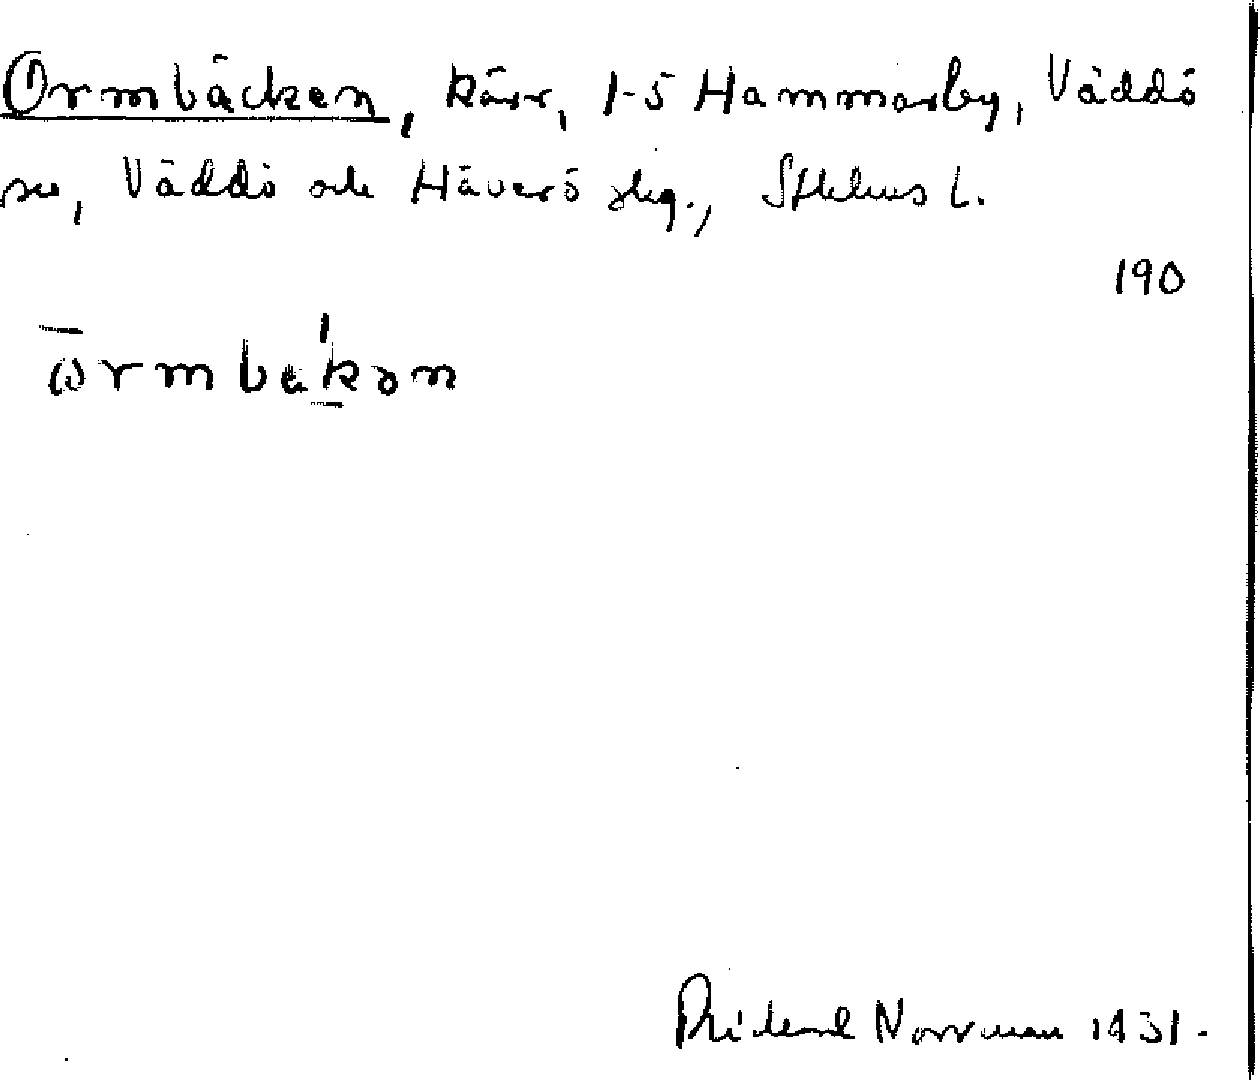 Ormbäcken, kärr, 1-5 Hammarby, Väddö
sn, Väddö och Häverö skg., Sthlms L.
190
ω̄rmbek̠ən
Rickard Norrman 1931.